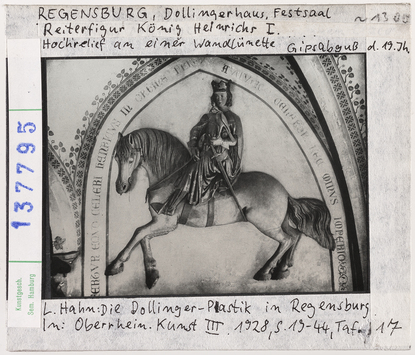 REGENSBURG, Dollingerhaus, Festsaal ~1300
Reiterfigur König Heinrichs I. . . . .
Hochrelief an einer Wandlünette Gipsabguß d. 19. Jh
137795
Kunstgesch.
Sem. Hamburg
L. Hahn: Die Dollinger-Plastik in Regensburg.
In: Oberrhein. Kunst III. 1928, S. 19-44, Taf. 17